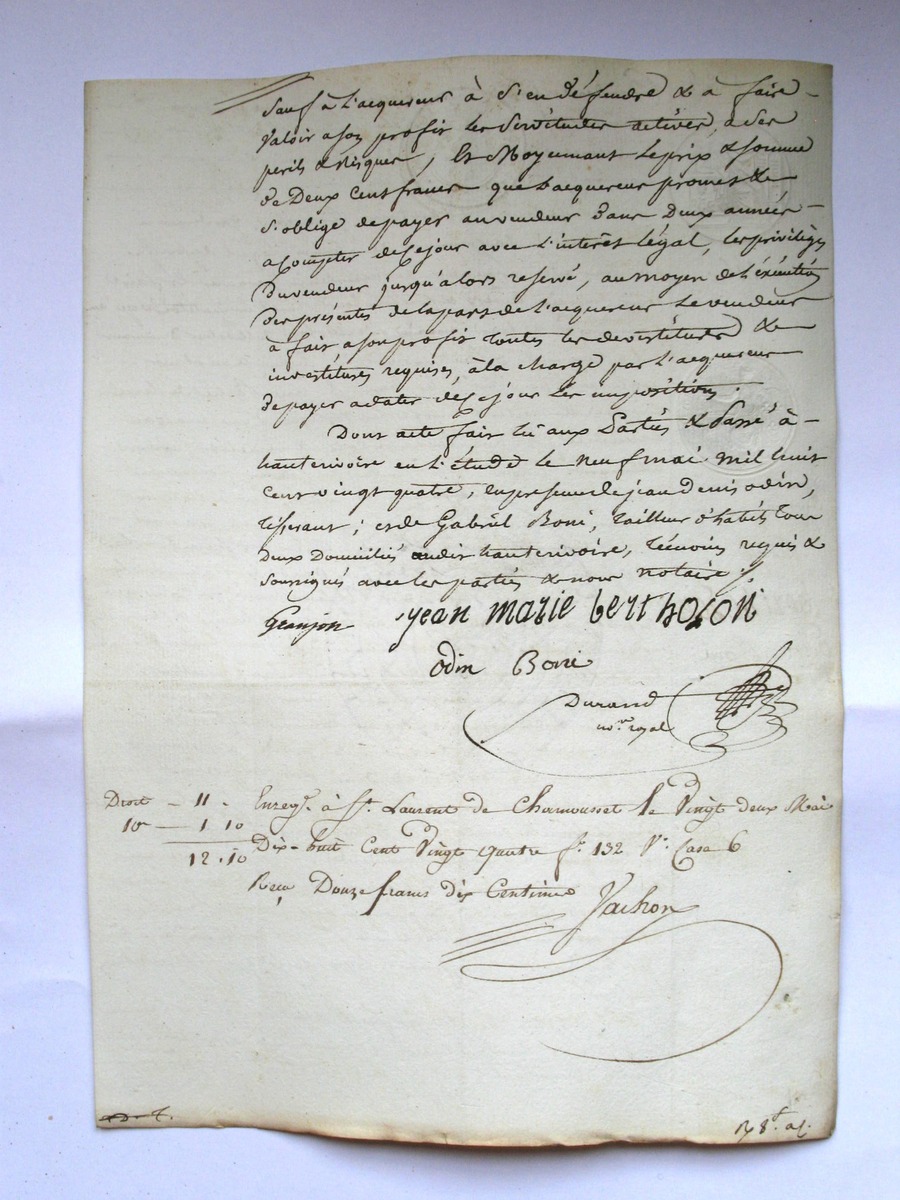 Sauf à l'acquereur à S'en défendre & à faire
Valoir a son profit les Servitudes actives, a Ses
perils & risques, Et Moyennant le prix & somme
de Deux Cent francs que l'acquereur promet &
S'oblige de payer au vendeur dans Deux années
a Compter de Ce jour avec l'interet légal, les privilèges
du vendeur jusqu'alors reservé, au moyen de l'éxécution
des présentes de la part de l'acquereur le vendeur
à fait a son profit toutes les devestitures &
investitures requises, à la charge par l'acquereur
de payer a dater de Ce jour les impositions.
Dont acte fait lu aux Parties & Passé à
hauterivoire en l'étude le neuf mai mil huit
Cent vingt quatre, en presence de jean denis odin,
tisserant; et de Gabriel Boni, tailleur d'habits tous
deux Domiciliés audit hauterivoire, témoins requis &
soussignés avec les parties & nous notaire
Granjon jean marie bertholon
odin Boni
Durand
no.re royal
Droit - 11 . Enreg.é à St. Laurent de Chamousset le Vingt deux Mai
10e - 1 10
12.10 Dix-huit Cent Vingt quatre f.o 132 V.o Case 6
Recu Douze francs dix Centimes Vachon